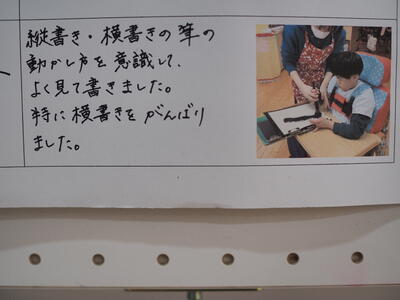 縦書き・横書きの筆の
動かし方を意識して、
よく見て書きました。
特に横書きをがんばり
ました。